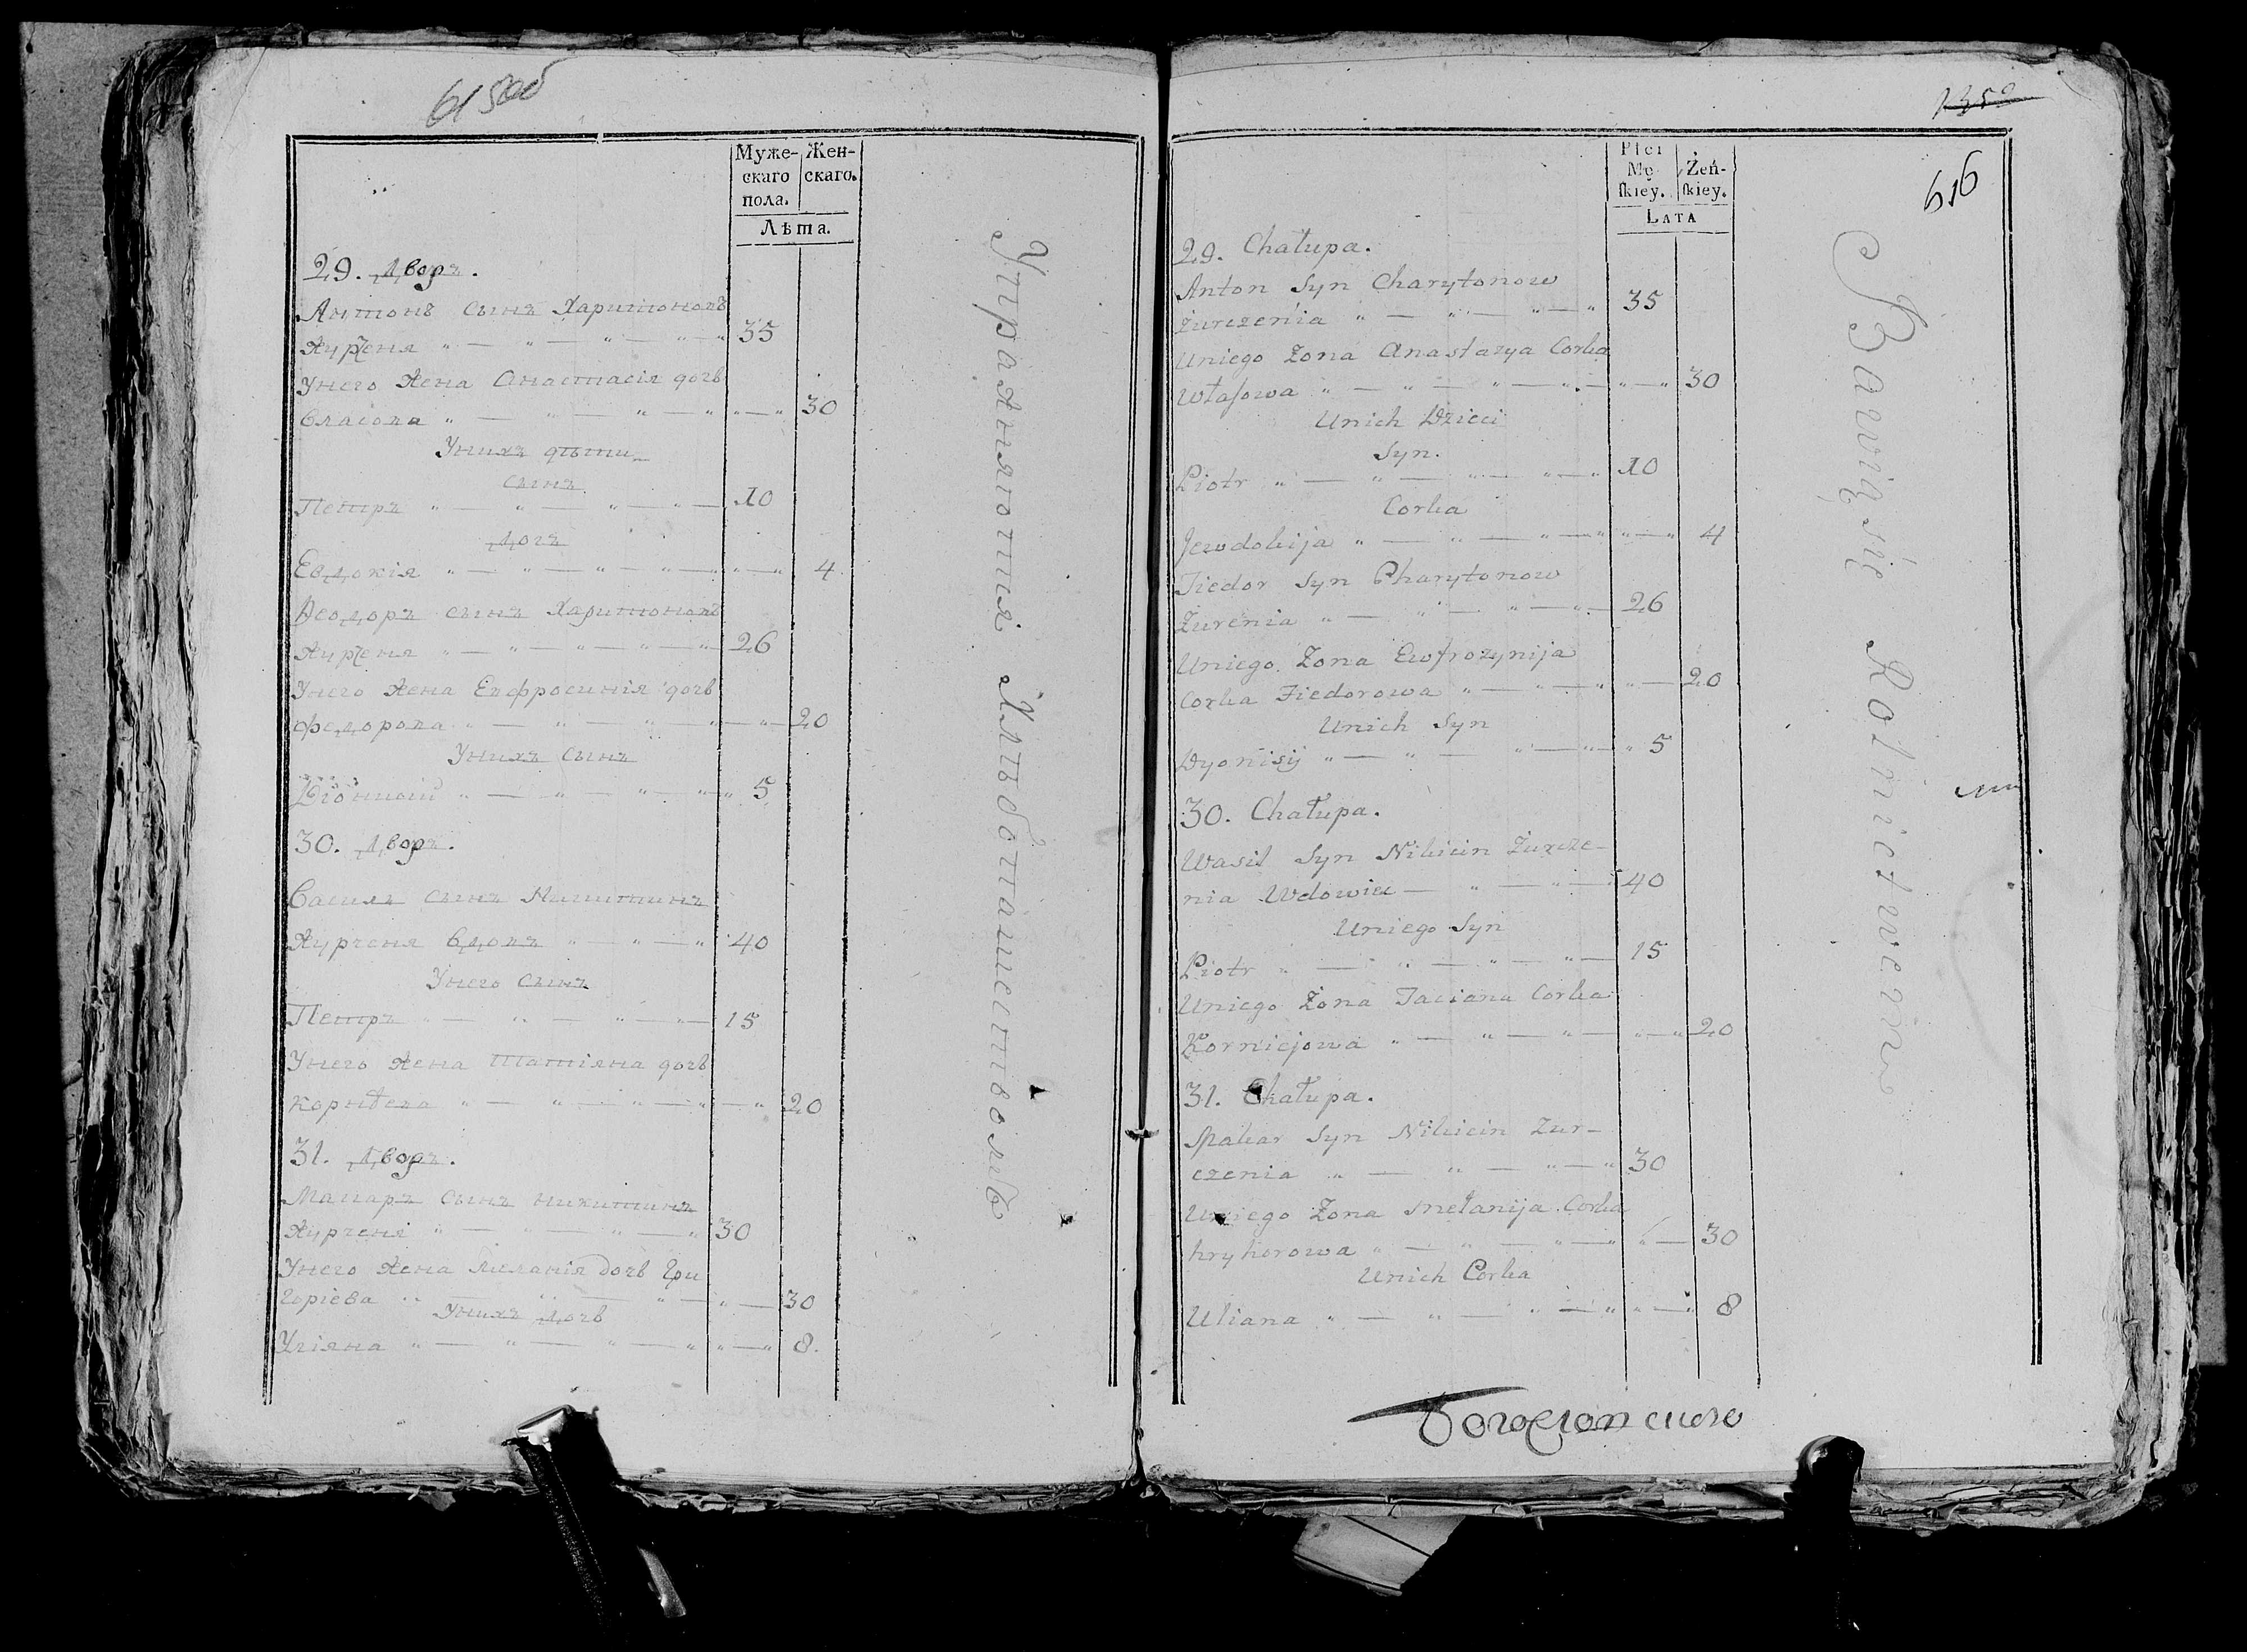 615об
Муже- Жен-
скаго скаго.
пола.
Лѣта.
29. Дворъ.
Антонъ сынъ Харитоновъ
Журченя 35
Унего Жена Анастасія дочь
Власова 30
Унихъ дѣти
сынъ
Петръ 10
Дочъ
Евдокія 4
Ѳеодоръ сынъ Харитоновъ
Журченя 26
Унего Жена Евфросинія дочь
Федорова 20
Унихъ сынъ
Діонисій 5
30. Дворъ.
Василь сынъ Никитинъ
Журченя Вдовъ 40
Унего сынъ
Петръ 15
Унего Жена Татіяна дочь
Корнѣева 20
31. Дворъ.
Макаръ сынъ Никитинъ
Журченя 30
Унего Жена Меланія дочь Гри
горіева 30
Унихъ Дочь
Уліяна 8.
Упражняются Хлѣбопашествомъ
1352
616
Płci
Mę- Żeń-
ſkiey. ſkiey.
Lata
29. Chałupa.
Anton Syn Charytonow
Zurczenia 35
Uniego Zona Anastazya Corka
Własowa 30
Unich Dzieci
Syn.
Piotr 10
Corka
Jewdokija 4
Fiedor Syn Charytonow
Zurenia 26
Uniego Zona Ewfrozynija
Corka Fiedorowa 20
Unich Syn
Dyonisij 5
30. Chałupa.
Wasil Syn Nikicin Zurcze-
nia Wdowiec 40
Uniego Syn
Piotr 15
Uniego Zona Taciana Corka
Korniejowa 20
31. Chałupa.
Makar Syn Nikicin Zur-
czenia 30
Uniego Zona Mełanija Corka
hryhorowa 30
Unich Corka
Uliana 8
Bawią się Rolnictwem